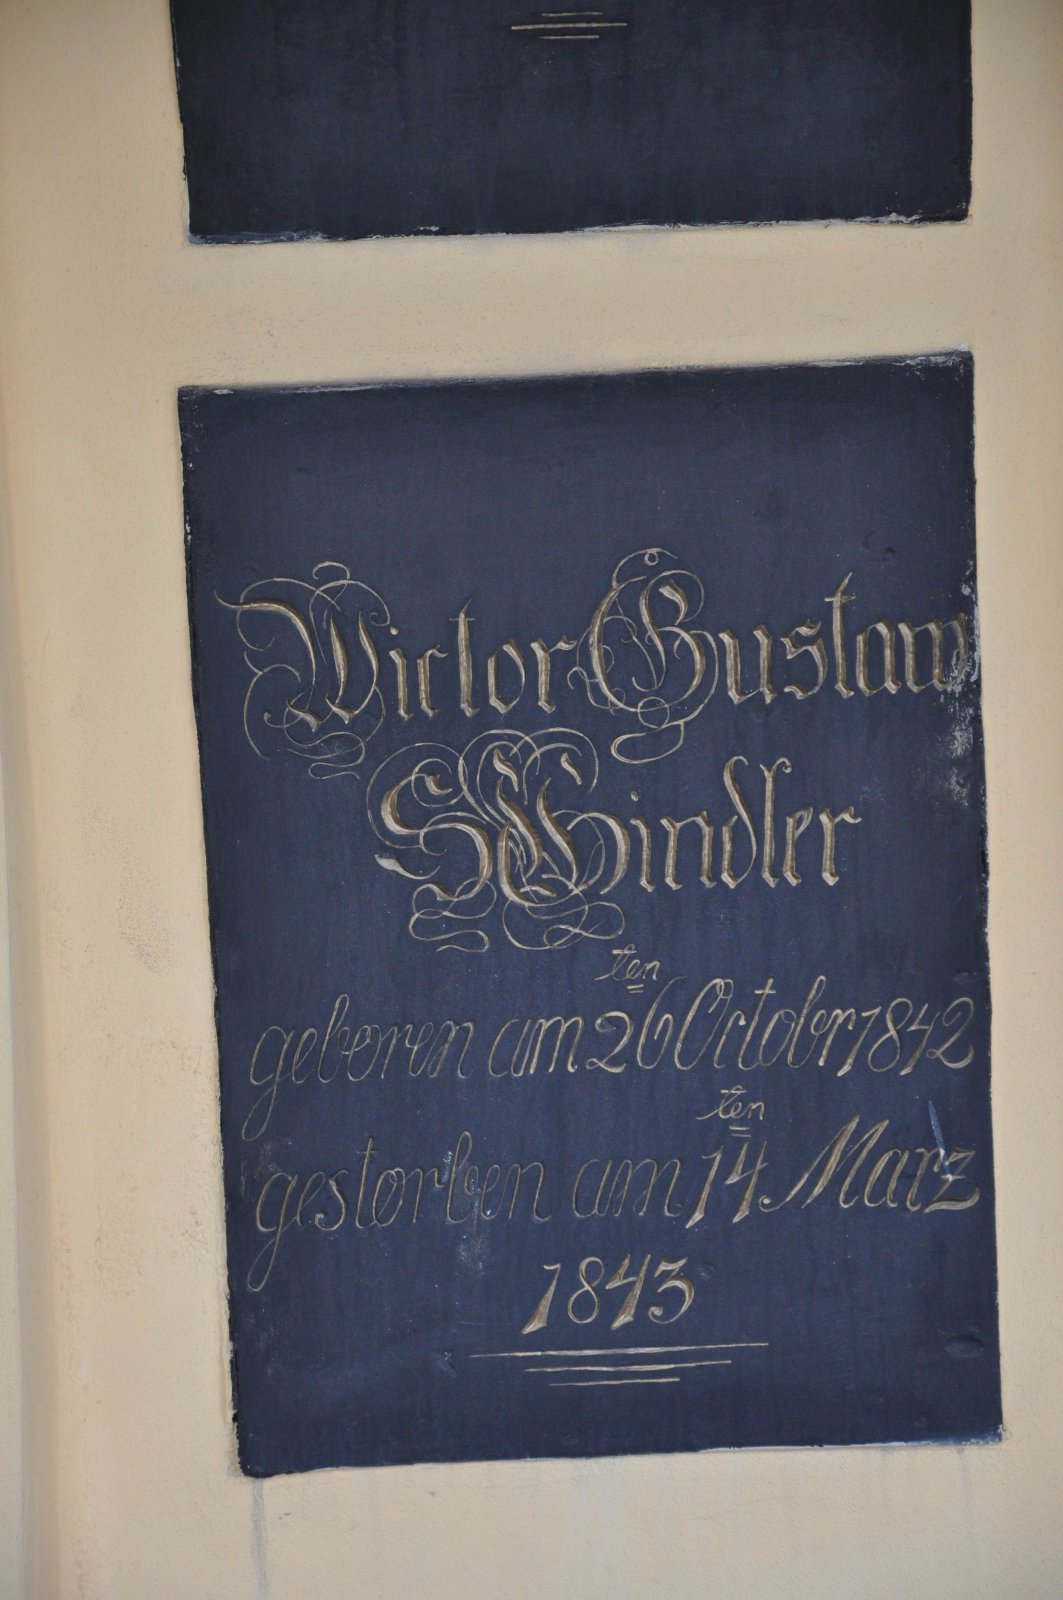 Victor Gustaw
geboren am 26ten October 1842
gestorben am 14ten März
1843